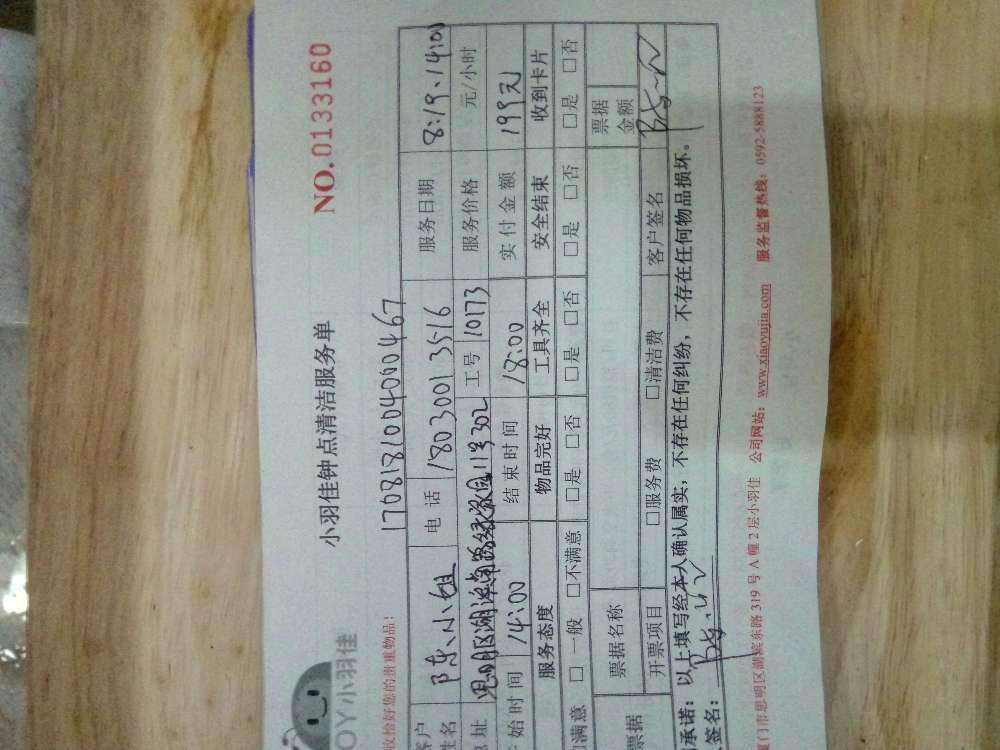 OY小羽佳
小羽佳钟点清洁服务单
NO.0133160
收恰好您的贵重物品!
1708181004000467
客户姓名 陈小姐 电话 18030013516 服务日期 8:19、14:00
地址 思明区湖滨南路 11号302 工号 10173 服务价格 元/小时
始时间 14:00 结束时间 18:00 实付金额 199元
服务态度 物品完好 工具齐全 安全结束 收到卡片
满意 □一般 □不满意 □是 □否 □是 □否 □是 □否 □是 □否
票据 票据名称 票据金额
开票项目 □服务费 □清洁费 客户签名
承诺:以上填写经本人确认属实,不存在任何纠纷,不存在任何物品损坏。
签名:
厦门市思明区湖滨东路319号A幢2层小羽佳 公司网站:www.xiaoyujia.com 服务监督热线:0592-5888123